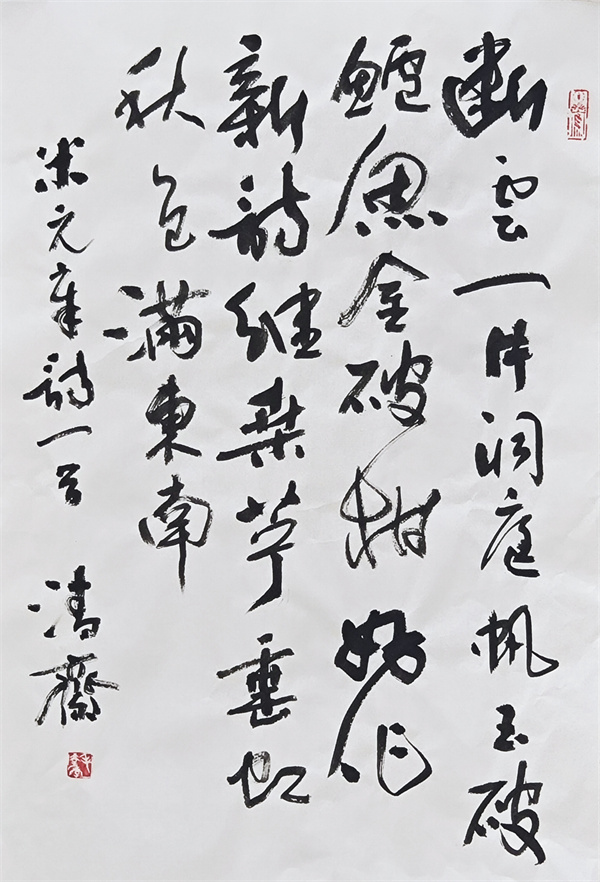 斷雲一片洞庭帆玉破
鱸魚金破柑好作
新詩繼桑苧垂虹
秋色滿東南
米元章詩一首 清齋